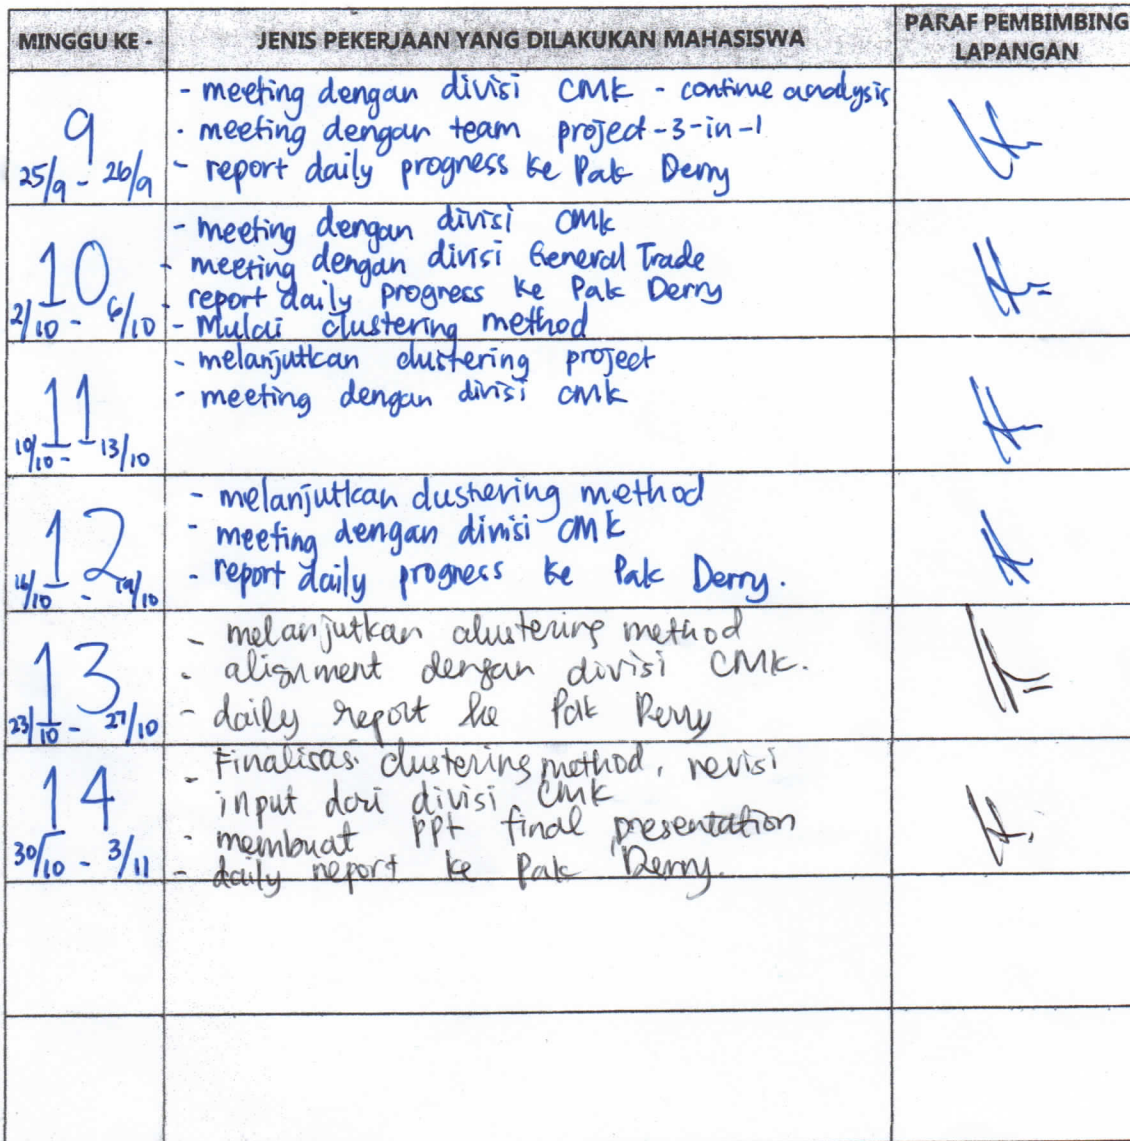 MINGGU KE -
JENIS PEKERJAAN YANG DILAKUKAN MAHASISWA
PARAF PEMBIMBING
LAPANGAN
9
25/9 - 26/9
- meeting dengan divisi CMK - continue analysis
- meeting dengan team project-3-in-1
- report daily progress ke Pak Derry
10
2/10 - 6/10
- meeting dengan divisi CMK
- meeting dengan divisi General Trade
- report daily progress ke Pak Derry
- Mulai clustering method
11
10/10 - 13/10
- melanjutkan clustering project
- meeting dengan divisi CMK
12
16/10 - 19/10
- melanjutkan clustering method
- meeting dengan divisi CMK
- report daily progress ke Pak Derry.
13
23/10 - 27/10
- melanjutkan clustering method
- alignment dengan divisi CMK.
- daily report ke Pak Derry
14
30/10 - 3/11
- Finalisasi clustering method, revisi
- input dari divisi CMK
- membuat ppt final presentation
- daily report ke Pak Derry.